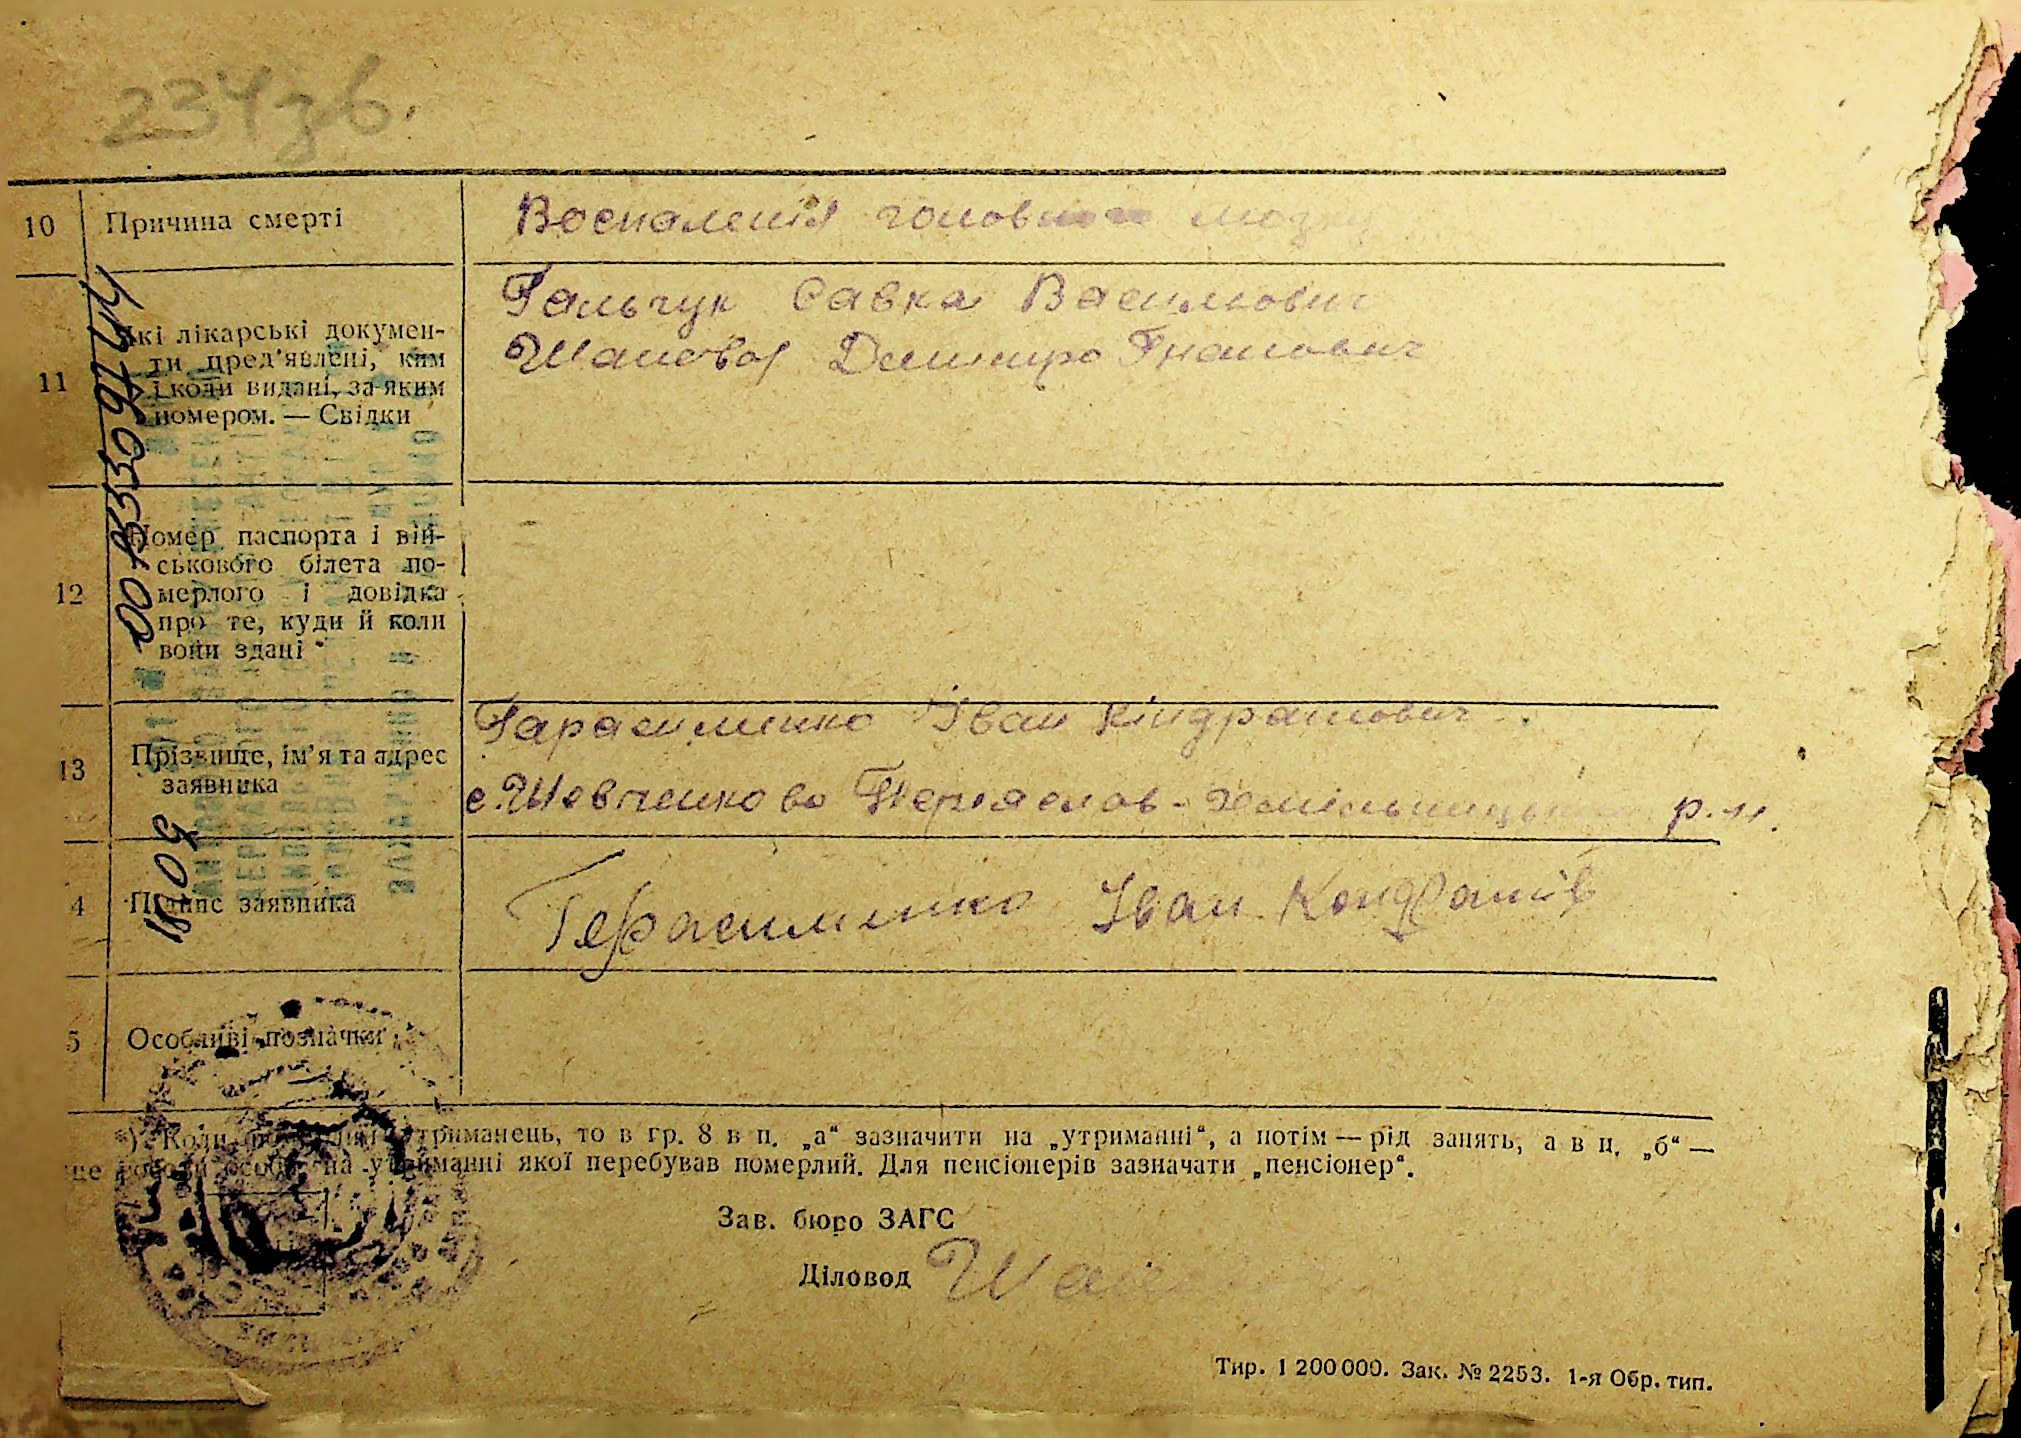 234 зв.
10 Причина смерті
Воспаленія головн мозк
11 Які лікарські докумен-
ти пред'явлені, ким
і коли видані, за яким
номером. — Свідки
Гальчук Савка Васильович
Шаповал Дмитро Гнатович
12 Номер паспорта і вій-
ськового білета по-
мерлого і довідка
про те, куди й коли
вони здані
13 Прізвище, ім'я та адрес
заявника
Гарасименко Іван Кіндратович
с. Шевченково Переяслов-Хмільницьк р.н.
4 Підпис заявника
Герасименко Іван Кондратів
5 Особливі позначки
*) Коли утриманець, то в гр. 8 в п. „а“ зазначити на „утриманні“, а потім — рід занять, а в п. „б“ —
особи на утриманні якої перебував померлий. Для пенсіонерів зазначати „пенсіонер“.
Зав. бюро ЗАГС
Діловод
Тир. 1 200 000. Зак. № 2253. 1-я Обр. тип.